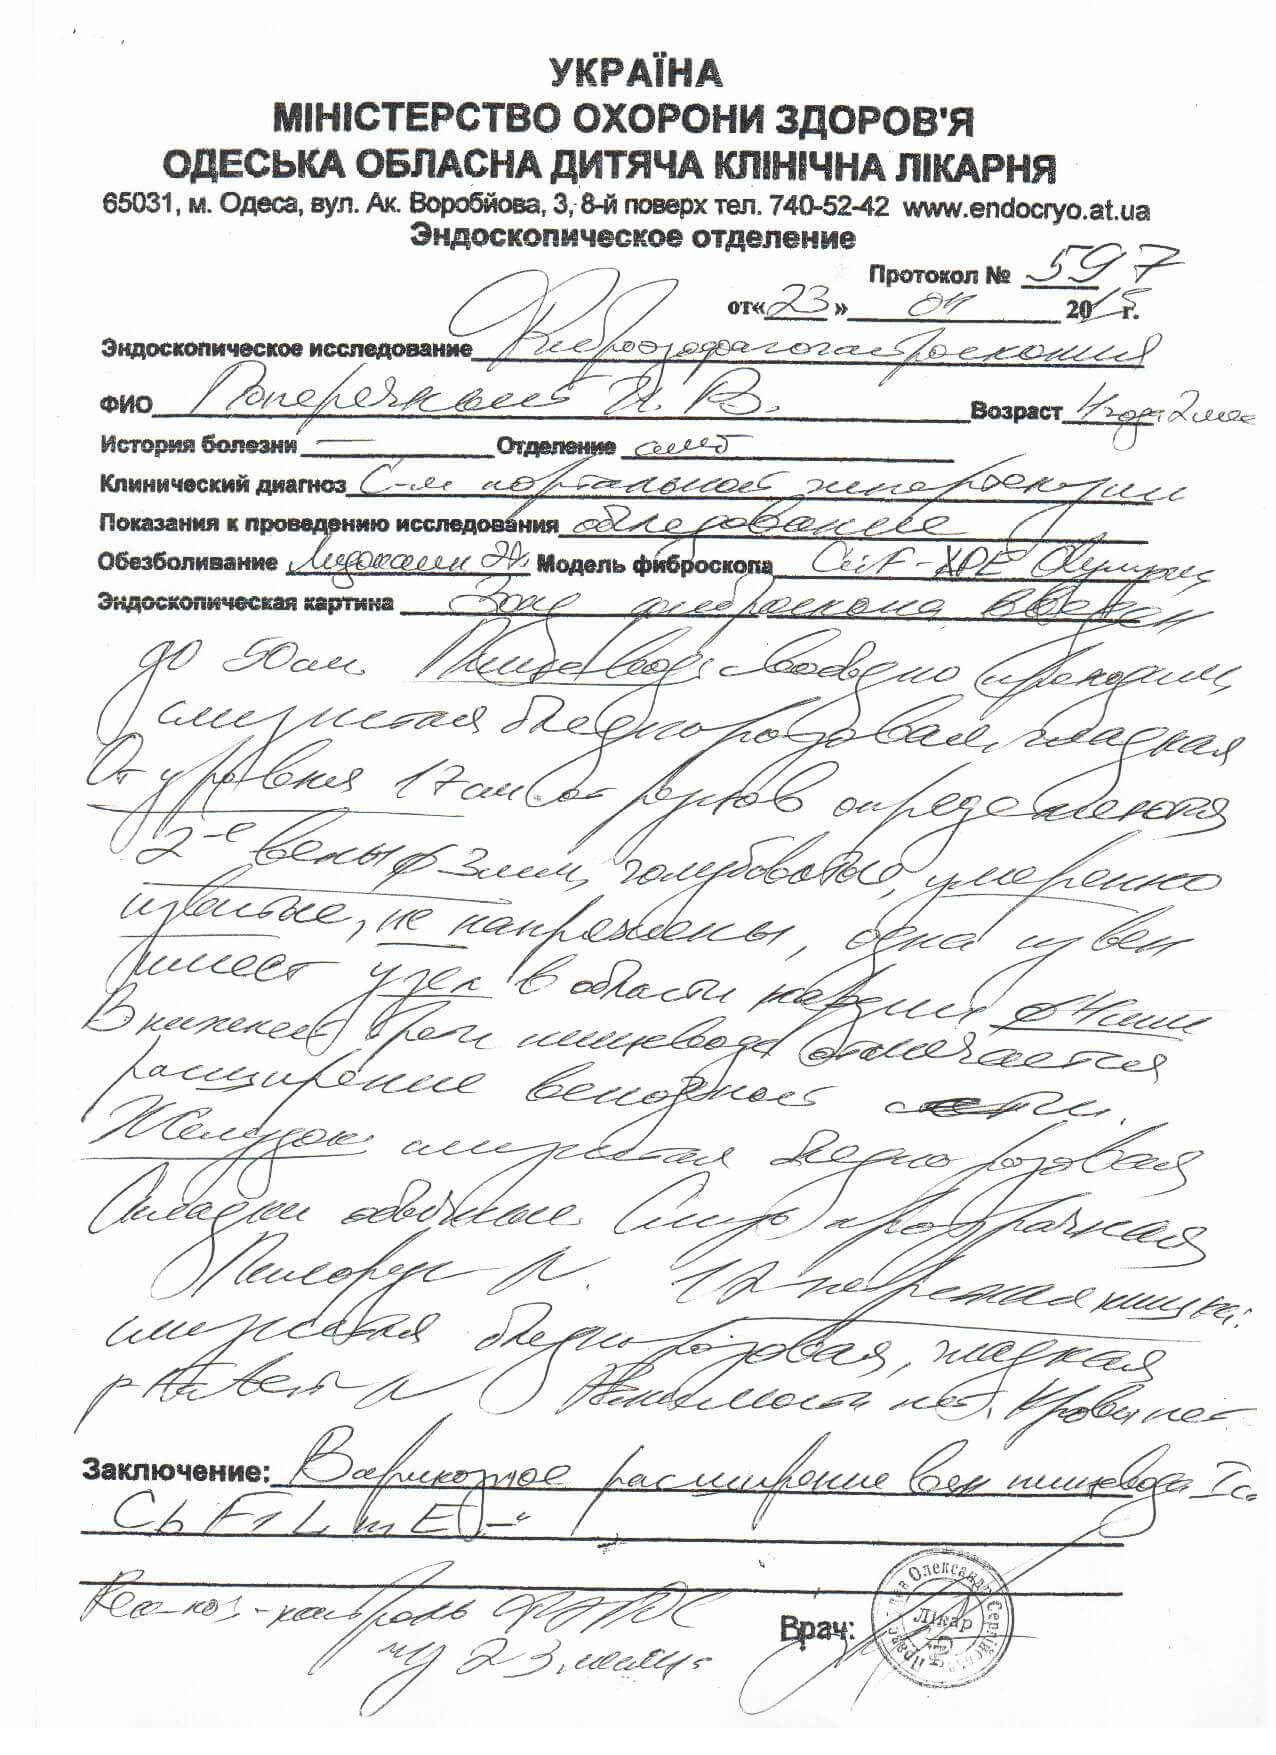 УКРАЇНА
МІНІСТЕРСТВО ОХОРОНИ ЗДОРОВ'Я
ОДЕСЬКА ОБЛАСНА ДИТЯЧА КЛІНІЧНА ЛІКАРНЯ
65031, м. Одеса, вул. Ак. Воробйова, 3, 8-й поверх тел. 740-52-42 www.endocryo.at.ua
Эндоскопическое отделение
Протокол № 597
от« 23 » 04 2015г.
Эндоскопическое исследование Фиброэзофагогастроскопия
ФИО Поперечный И. В. Возраст 4 года 2 мес
История болезни — Отделение амб
Клинический диагноз С-м портальной гипертензии
Показания к проведению исследования обследование
Обезболивание Лидокаин Модель фиброскопа GiF-XPE Olympus
Эндоскопическая картина Зонд фиброскопа введен
до 50см. Пищевод: свободно проходим,
слизистая бледнорозовая, гладкая
От уровня 17см от резцов определяются
2-е вены ф 3мм, голубоватые, умеренно
извитые, не напряжены, одна из вен
имеет узел в области кардии ф 4мм
В нижней трети пищевода отмечается
расширение венозной сети.
Желудок слизистая бледнорозовая
Складки обычные. Слизь прозрачная
Пилорус N. 12 перстная кишка:
слизистая бледнорозовая, гладкая
N нет. Крови нет.
Заключение: Варикозное расширение вен пищевода I ст
Cb F1 L m E
Рек-но: -контроль ФГДС
2-3 месяца
Врач:
Олександр Сергійович
Лікар